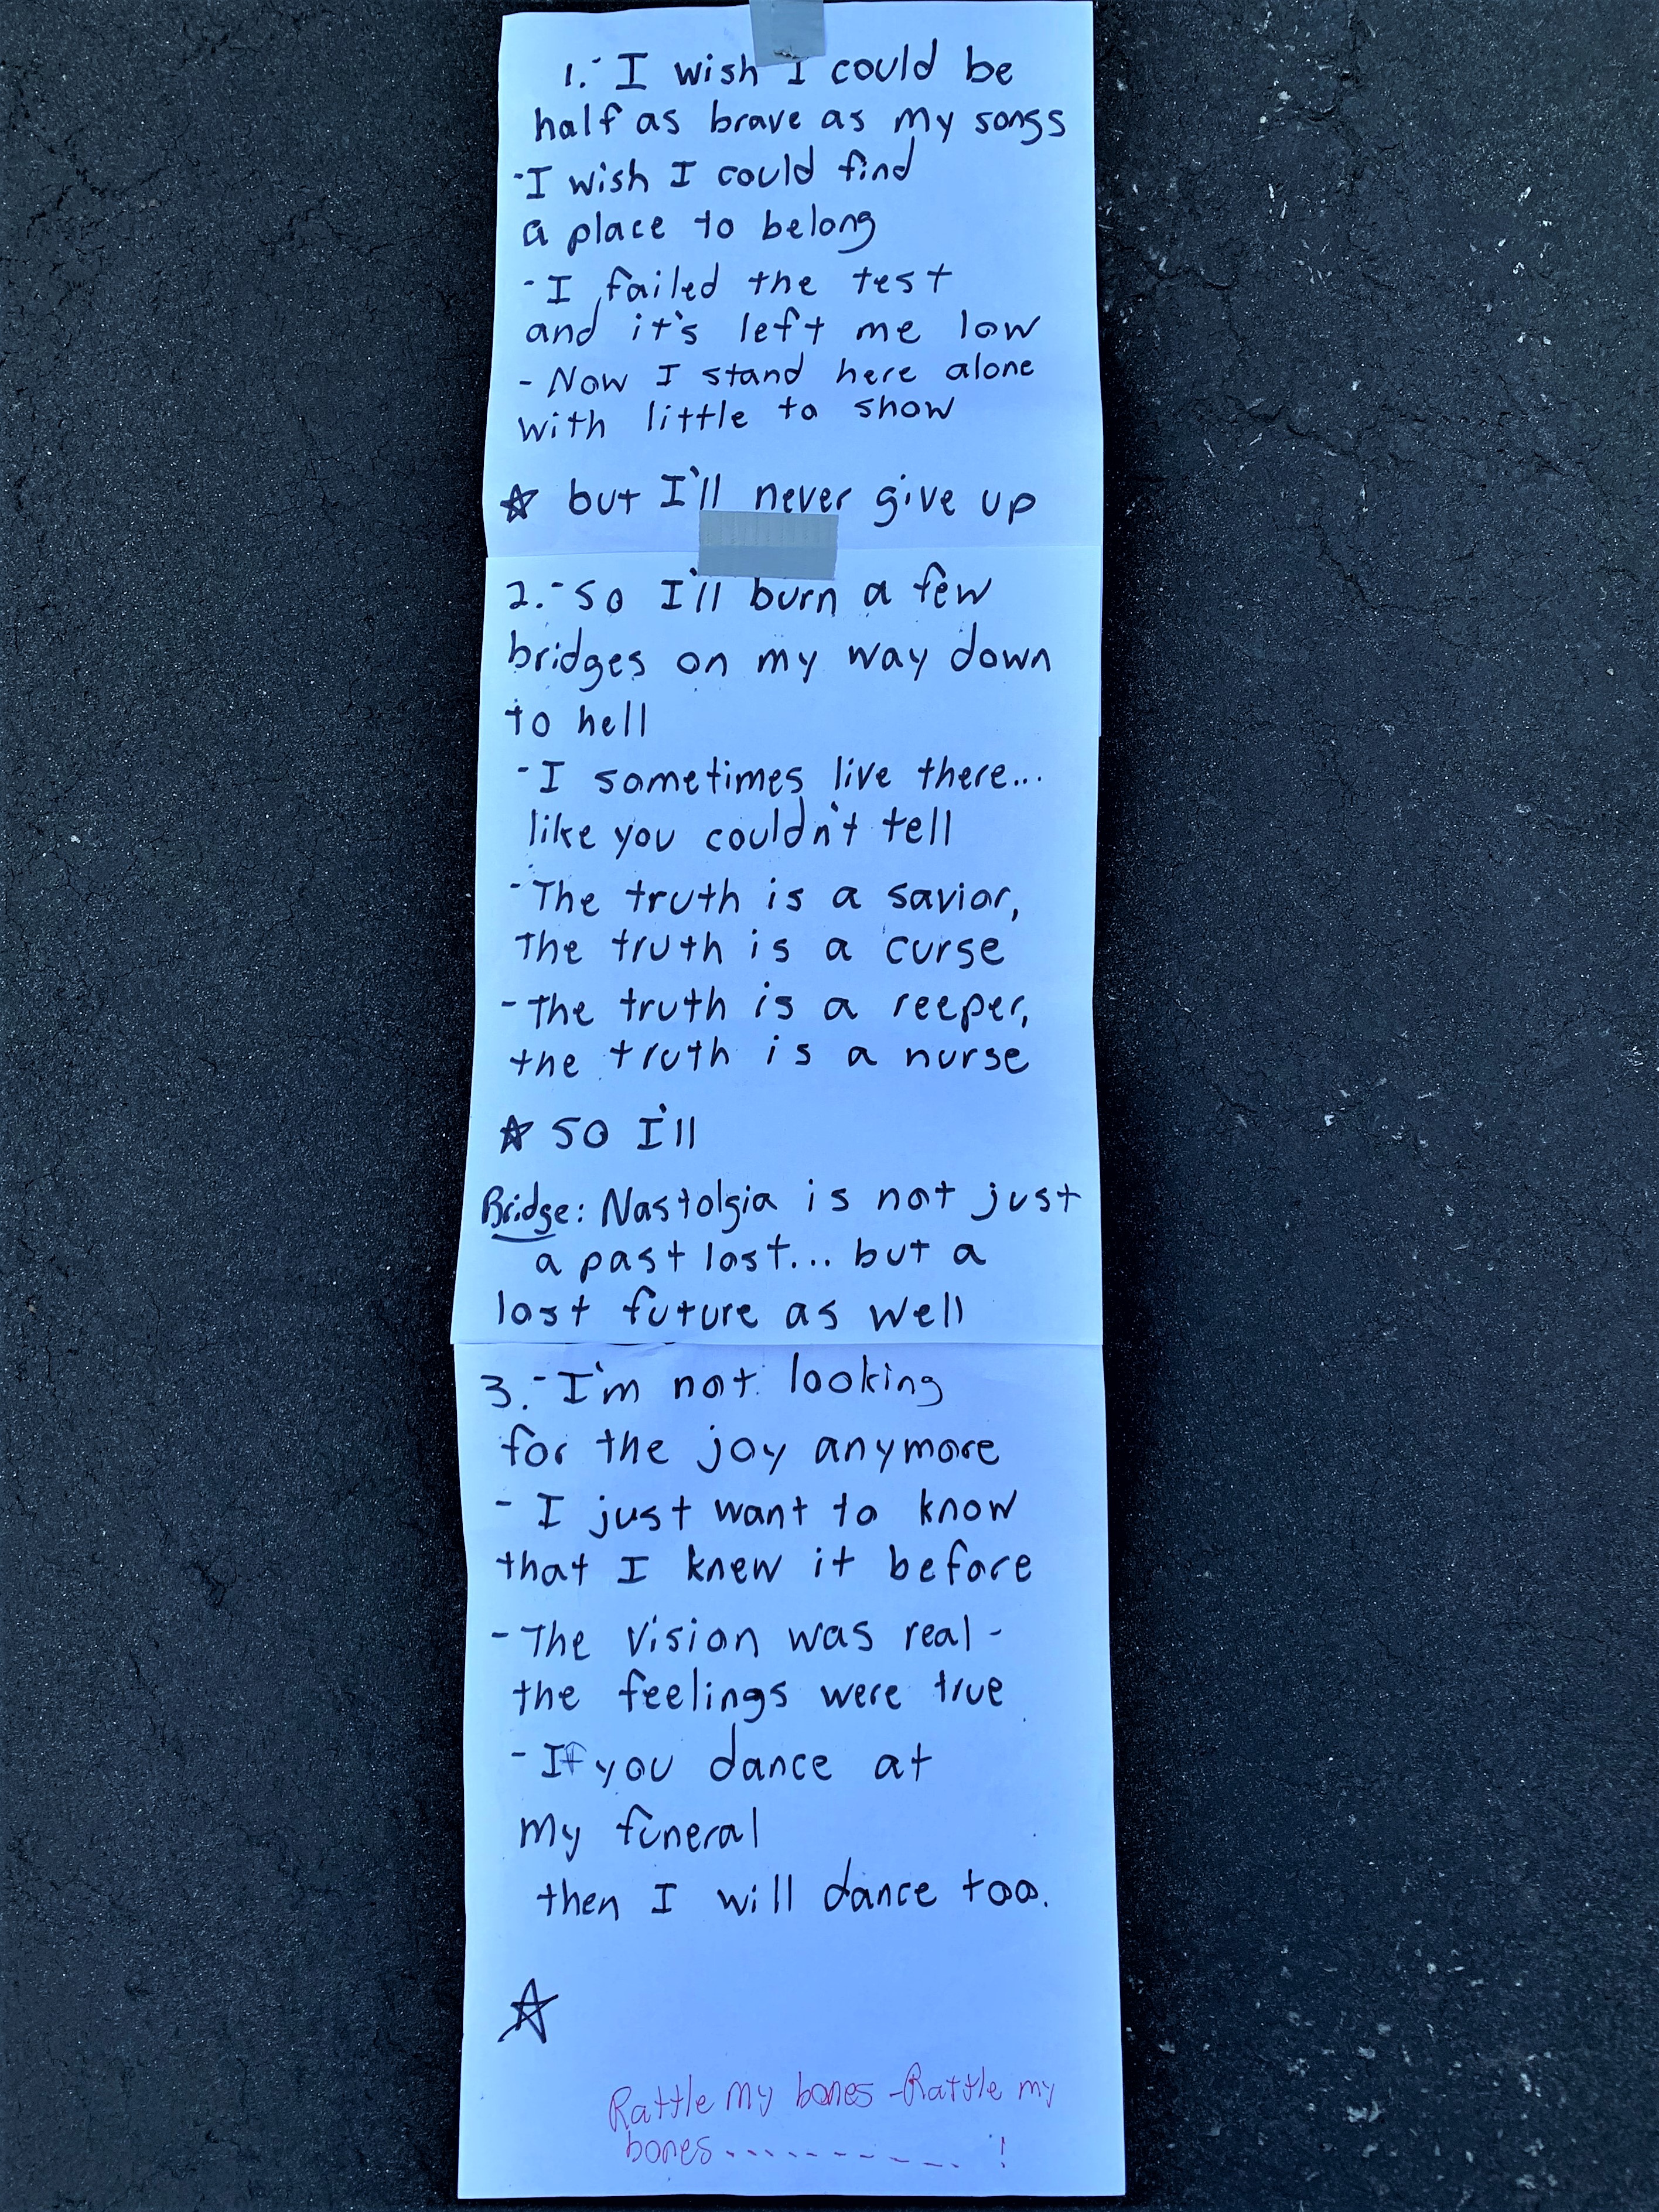 1. - I wish I could be
half as brave as my songs
- I wish I could find
a place to belong
- I failed the test
and it's left me low
- Now I stand here alone
with little to show
☆ but I'll never give up
2. - So I'll burn a few
bridges on my way down
to hell
- I sometimes live there...
like you couldn't tell
- The truth is a savior,
the truth is a curse
- The truth is a reeper,
the truth is a nurse
☆ So I'll
Bridge: Nastolgia is not just
a past lost... but a
lost future as well
3. - I'm not looking
for the joy anymore
- I just want to know
that I knew it before
- The vision was real -
the feelings were true
- If you dance at
my funeral
then I will dance too.
☆
Rattle my bones - Rattle my
bones - - - - - - - - - - !